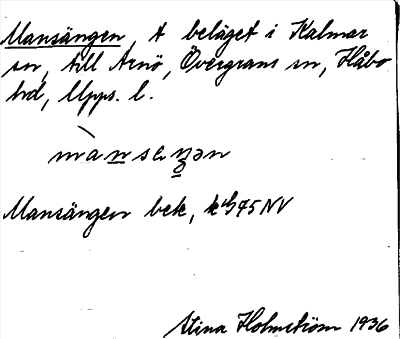 Mansängen, t beläget i Kalmar
sn, till Arnö, Övergrans sn, Håbo
hd, Upps. l.
Mansängen bek, 75 NV
Stina Holmström 1936